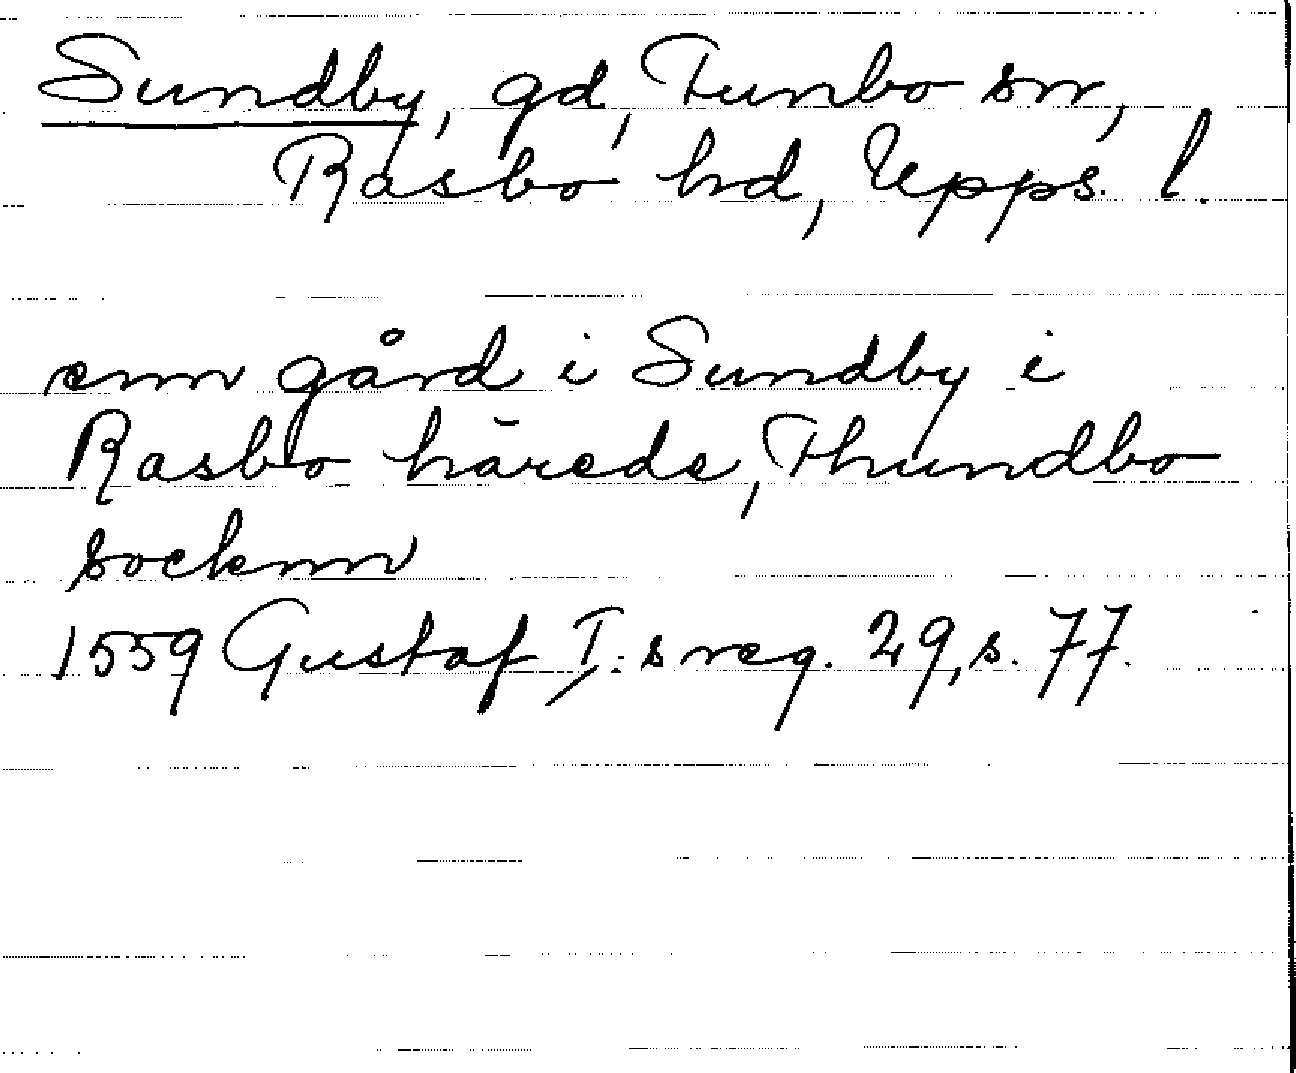 Sundby, gd, Funbo sn,
Rasbo hd, Upps. l.
enn gård i Sundby i
Rasbo härede, Thundbo
socknn
1559 Gustaf I:s reg. 29, s. 77.